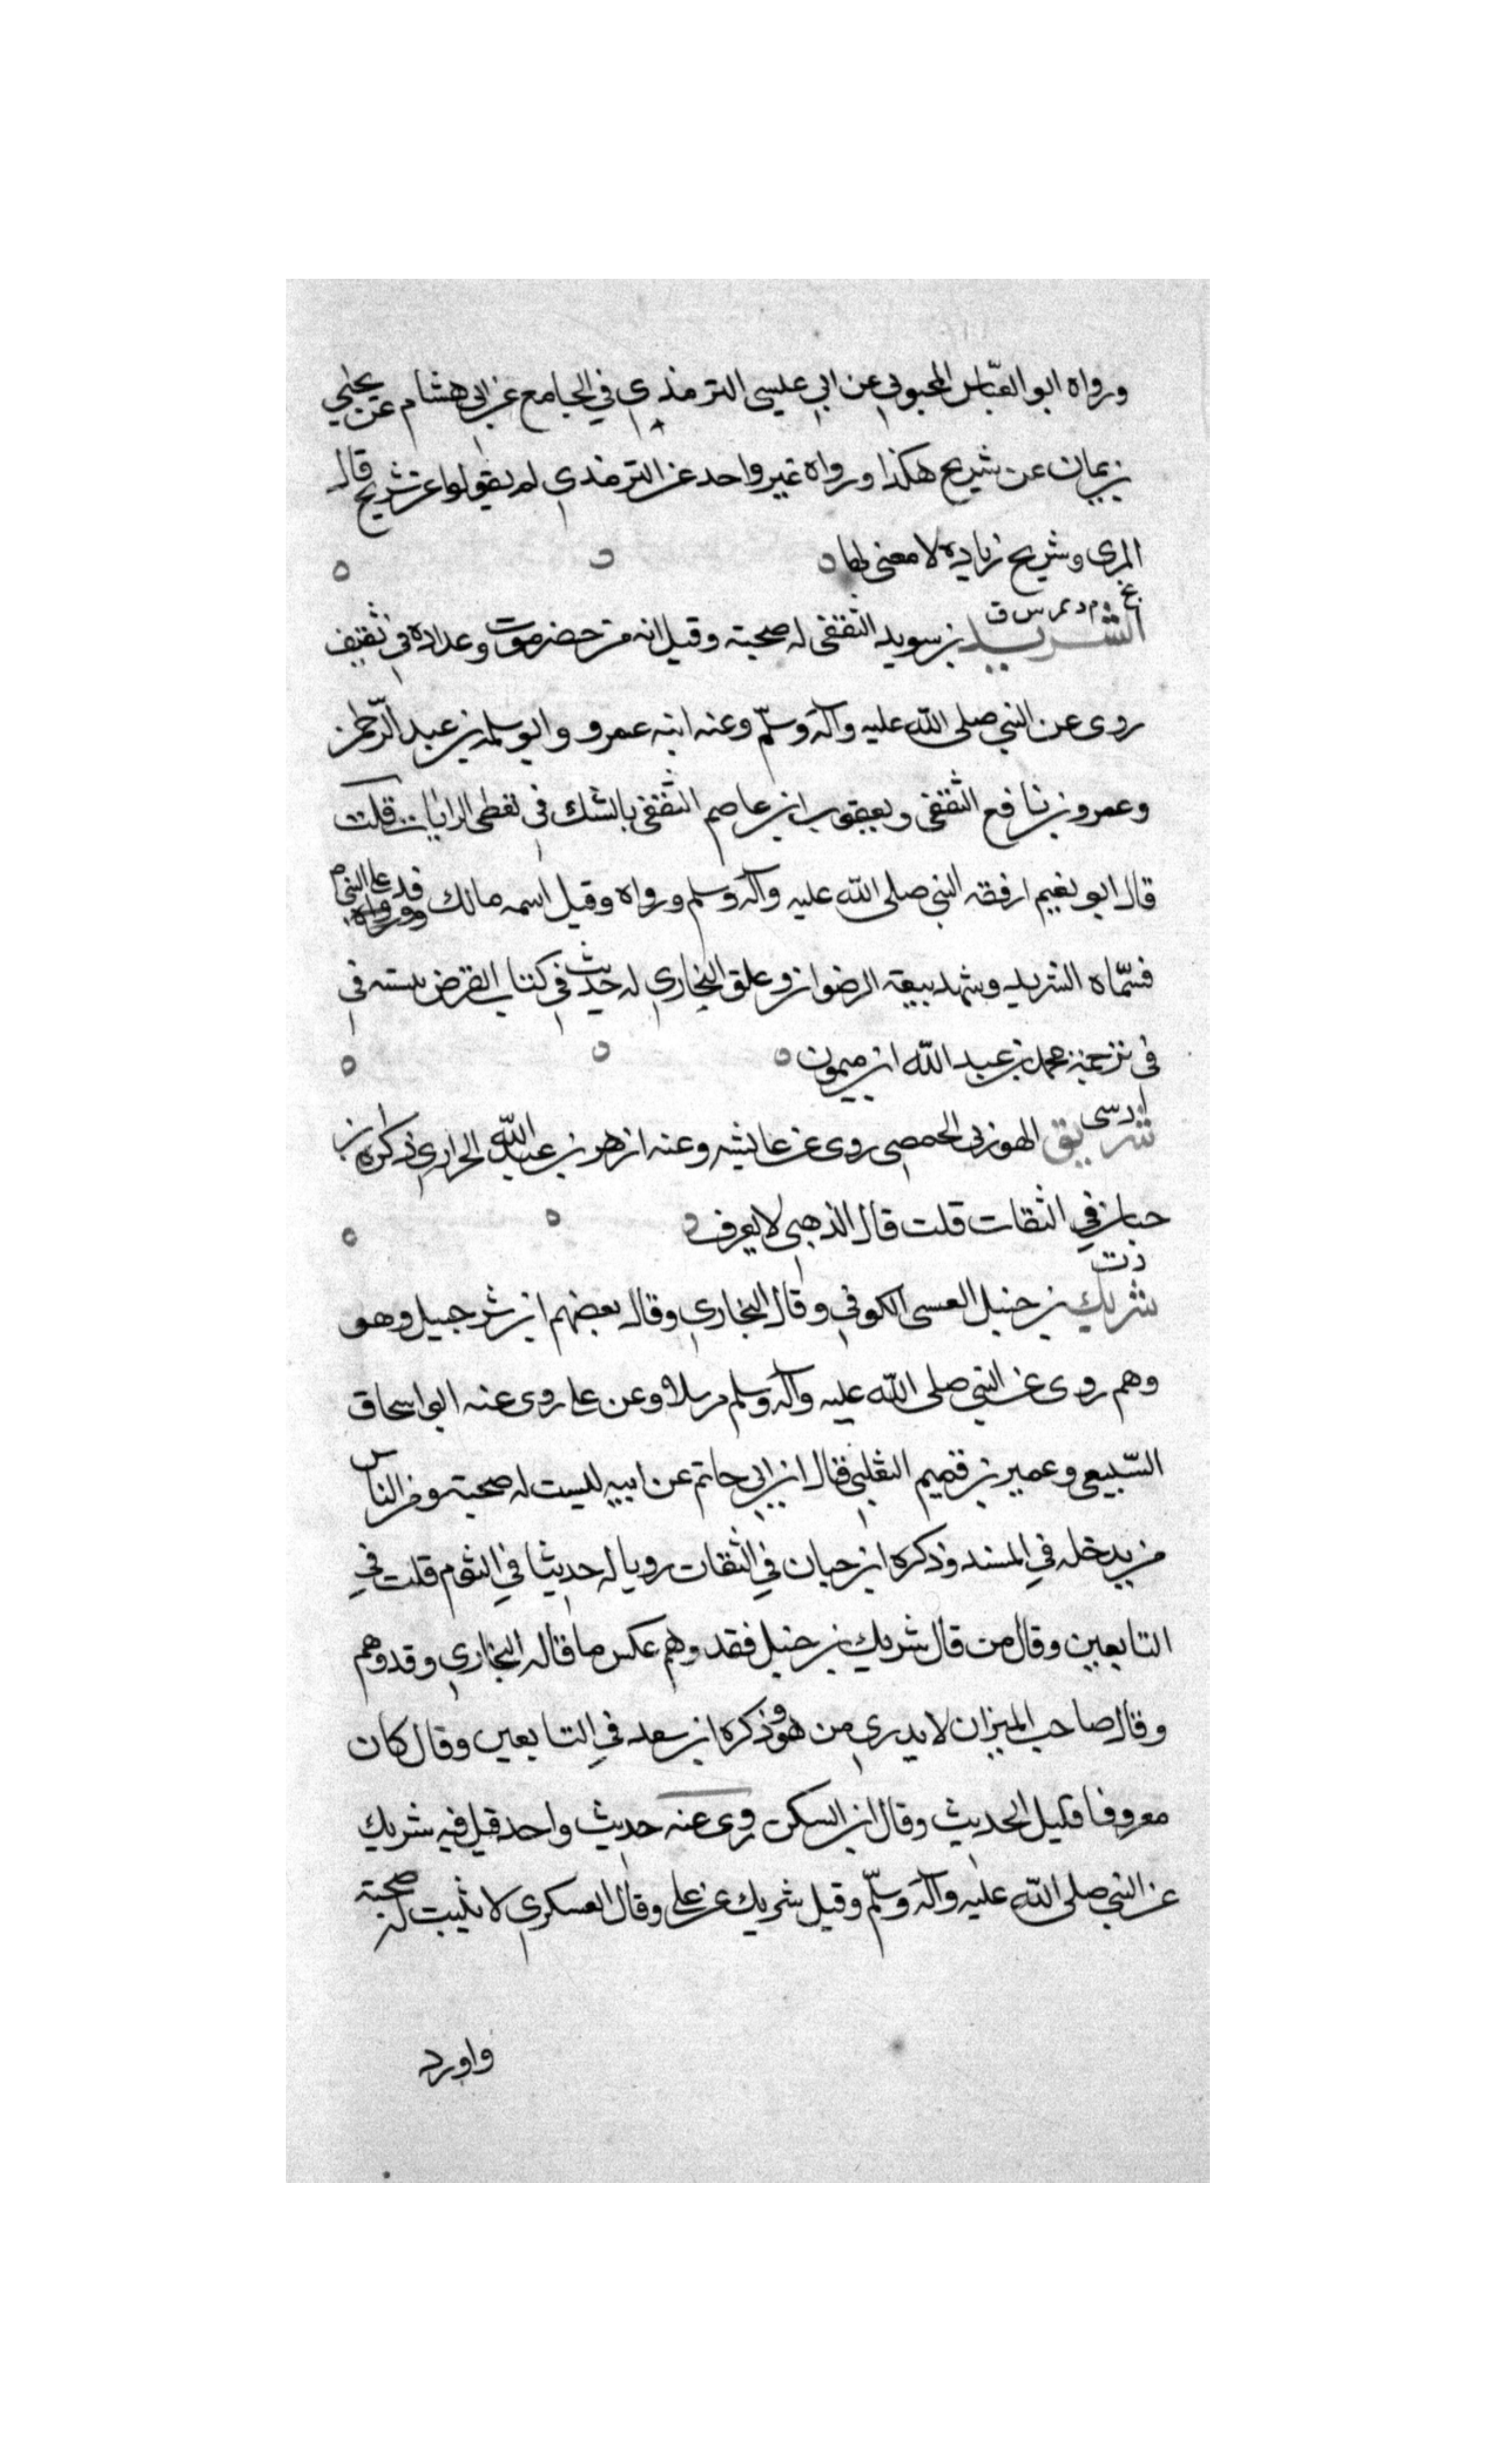 ورواه ابو العبّاس المحبوبي عن ابي عيسى الترمذي في الجامع عن ابي هشام عن يحيى
بن يمان عن شريح هكذا ورواه غير واحد عن الترمذي لم يقولوا عن شريح قال
المزي وشريح زياده لا معنى لها
بخ م د تم س ق
الشريد بن سويد الثقفى له صحبته وقيل انه من حضرموت وعداده في ثقيف
روى عن النبي صلى الله عليه وآله وسلّم وعنه ابنه عمرو وابو سلمه بن عبد الرّحمن
وعمرو بن نافع الثقفى ويعقوب ابن عاصم الثقفى بالشك في الرايات قلت
قال ابو نعيم ارفقه النبي صلى الله عليه وآله وسلم ورواه وقيل اسمه مالك قدم على النبي ص
فسّماه الشريد وشهد بيعة الرضوان وعلق البخاري له حديث في كتاب القرض في
في ترجمة محمد بن عبد الله ابن ميمون
د سى
شريق الهوزنى الحمصى روى عن عائشه وعنه ازهر بن عبد الله الحرازي ذكره بن
حبان في الثقات قلت قال الذهبى لا يعرف
د ت
شريك بن حنبل العبسى الكوفي وقال البخاري وقال بعضهم ابن شرحبيل وهو
وهم روى عن النبي صلى الله عليه وآله وسلم مرسلا وعن على روى عنه ابو اسحاق
السّبيعى وعمير بن قميم التغلبي قال ابن ابي حاتم عن ابيه ليست له صحبته ومن الناس
من يدخله في المسند وذكره ابن حبان في الثقات رويا له حديثا في الثوم قلت في
التابعين وقال من قال شريك بن حنبل فقد وهم عكس ما قاله البخاري وقد وهم
وقال صاحب الميزان لا يدري من هو وذكره ابن سعد في التابعين وقال كان
معروفا قليل الحديث وقال ابن السكن روى عنه حديث واحد قيل فيه شريك
عن النبي صلى الله عليه وآله وسلّم وقيل شريك عن على وقال العسكري لا يثبت له صحبته
واورد